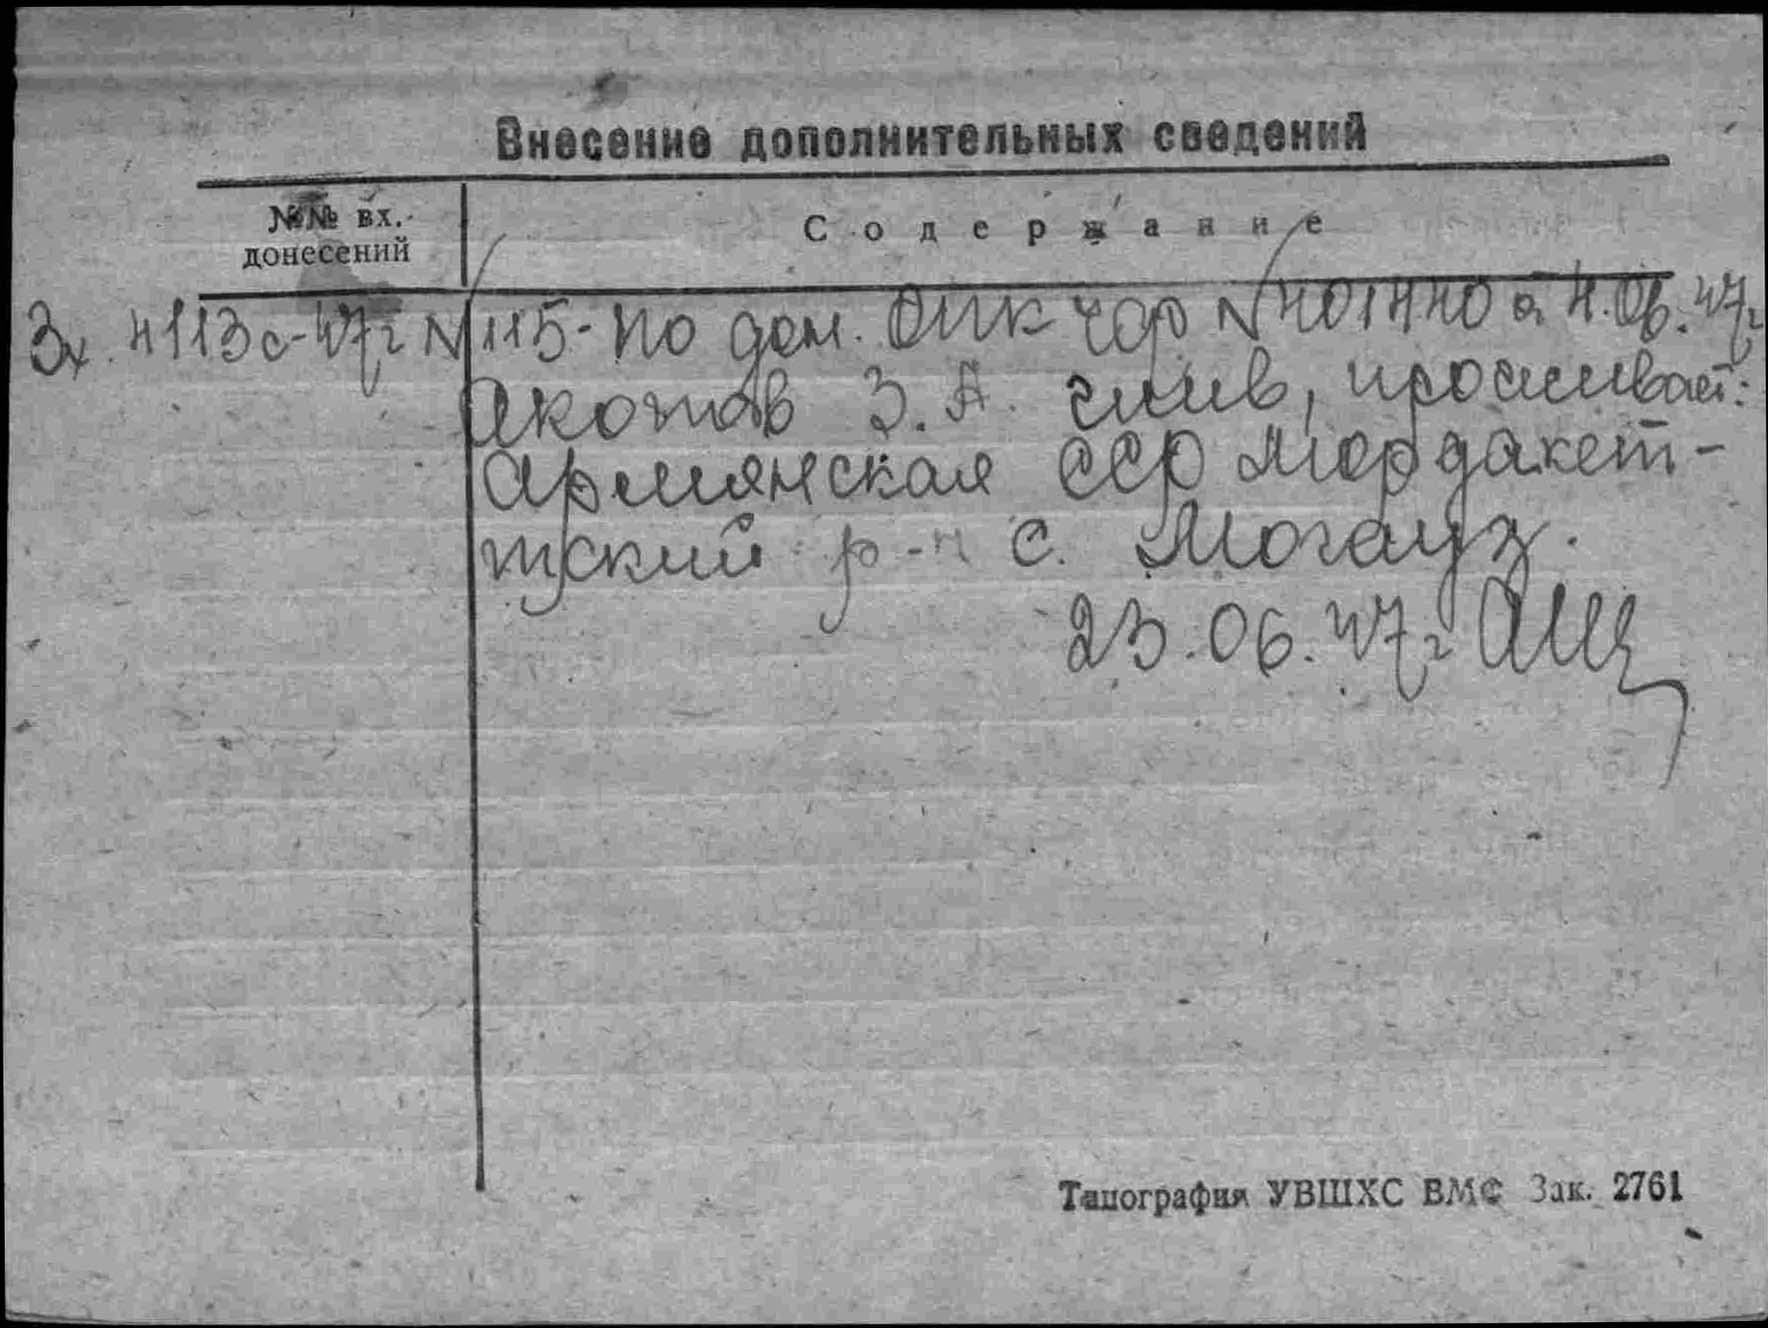 Внесение дополнительных сведений
№№ вх. донесений
Содержание
Вх. 4113с-47г N 115- По дон. ОПК ЧФ N 401440 от 4.06.47г
Акопов З.А. жив, проживает:
Армянская ССР Мордакет-
тский р-н с.
23.06.47г
Типография УВШХС ВМС Зак. 2761